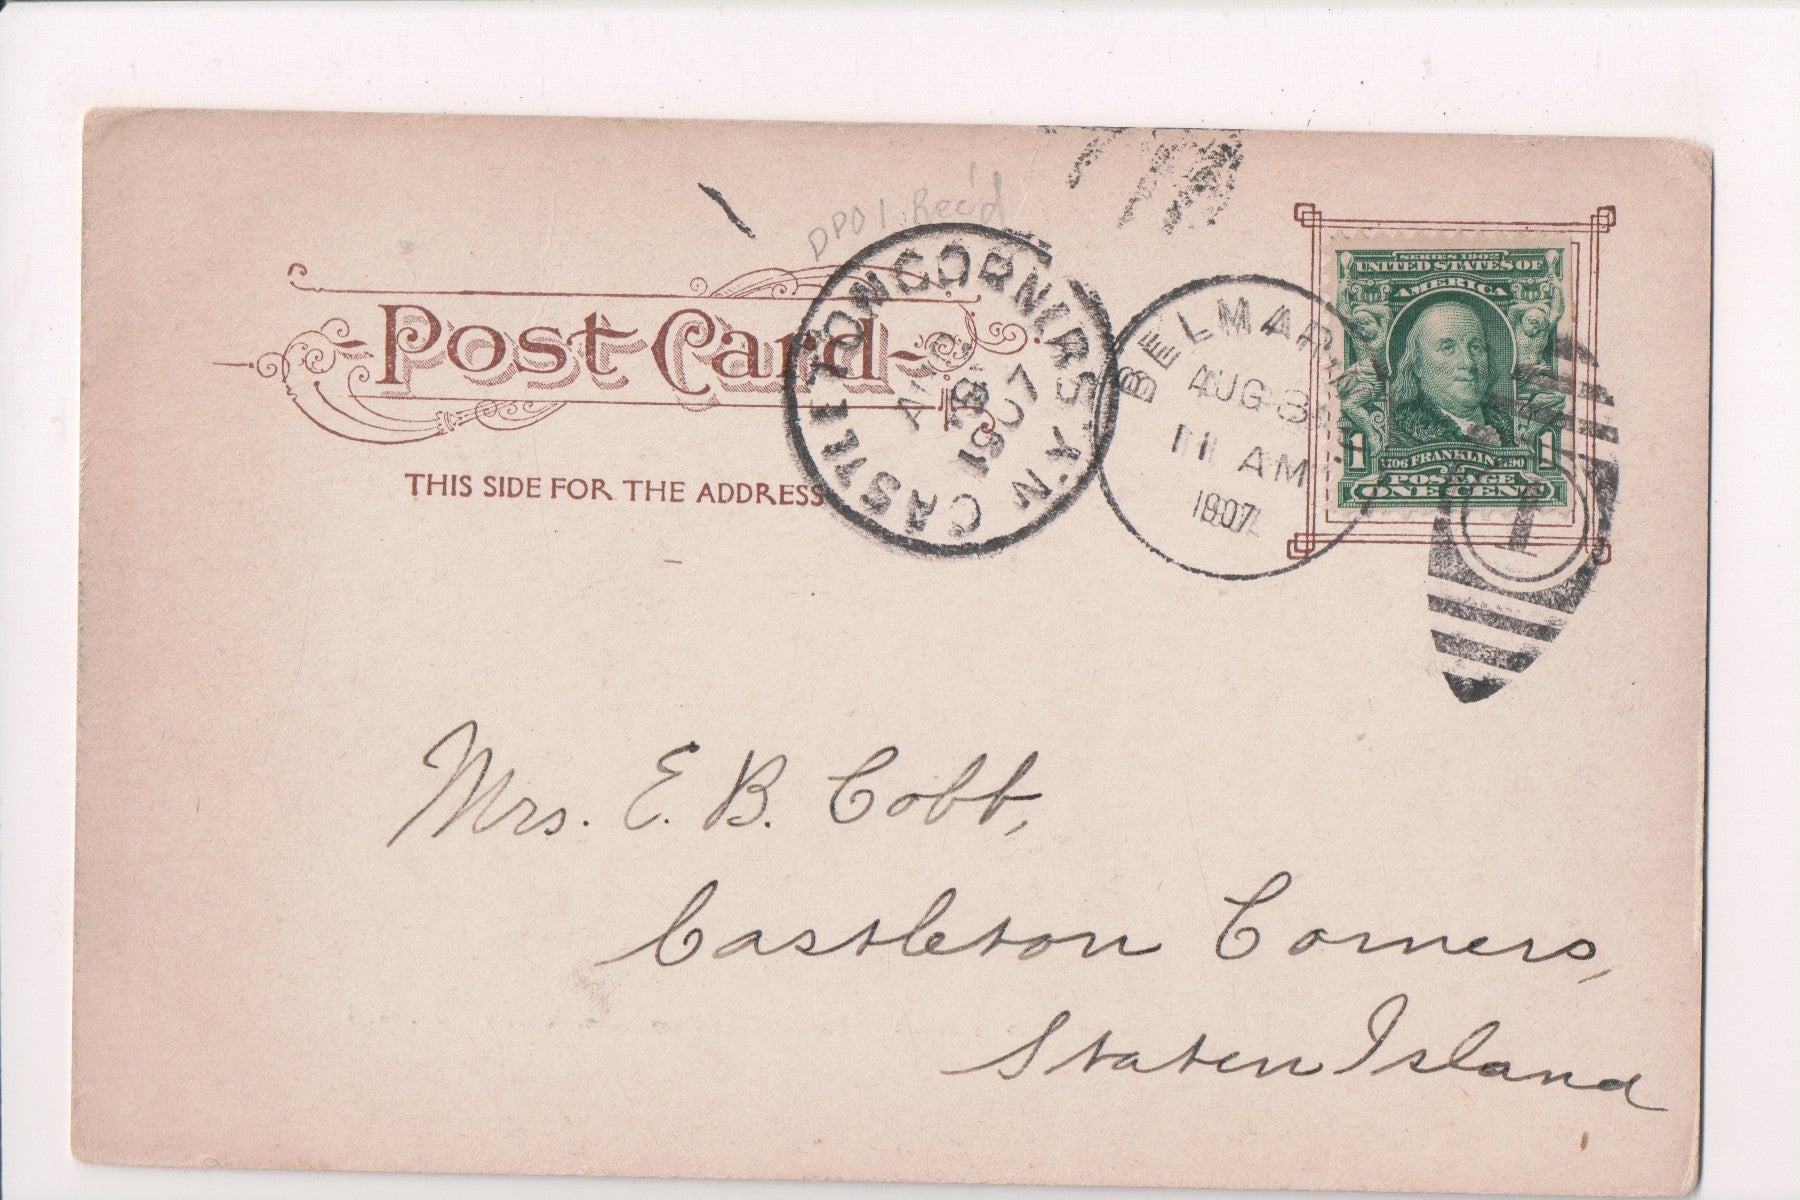 DPO 1 Rec'd
Post Card
THIS SIDE FOR THE ADDRESS
CASTLETON CORNERS N.Y.
1907
BELMAR
AUG
11 AM
1907
SERIES 1902
UNITED STATES OF
AMERICA
1 1706 FRANKLIN 1790 1
POSTAGE
ONE CENT
1
Mrs. E. B. Cobb,
Castleton Corners,
Staten Island